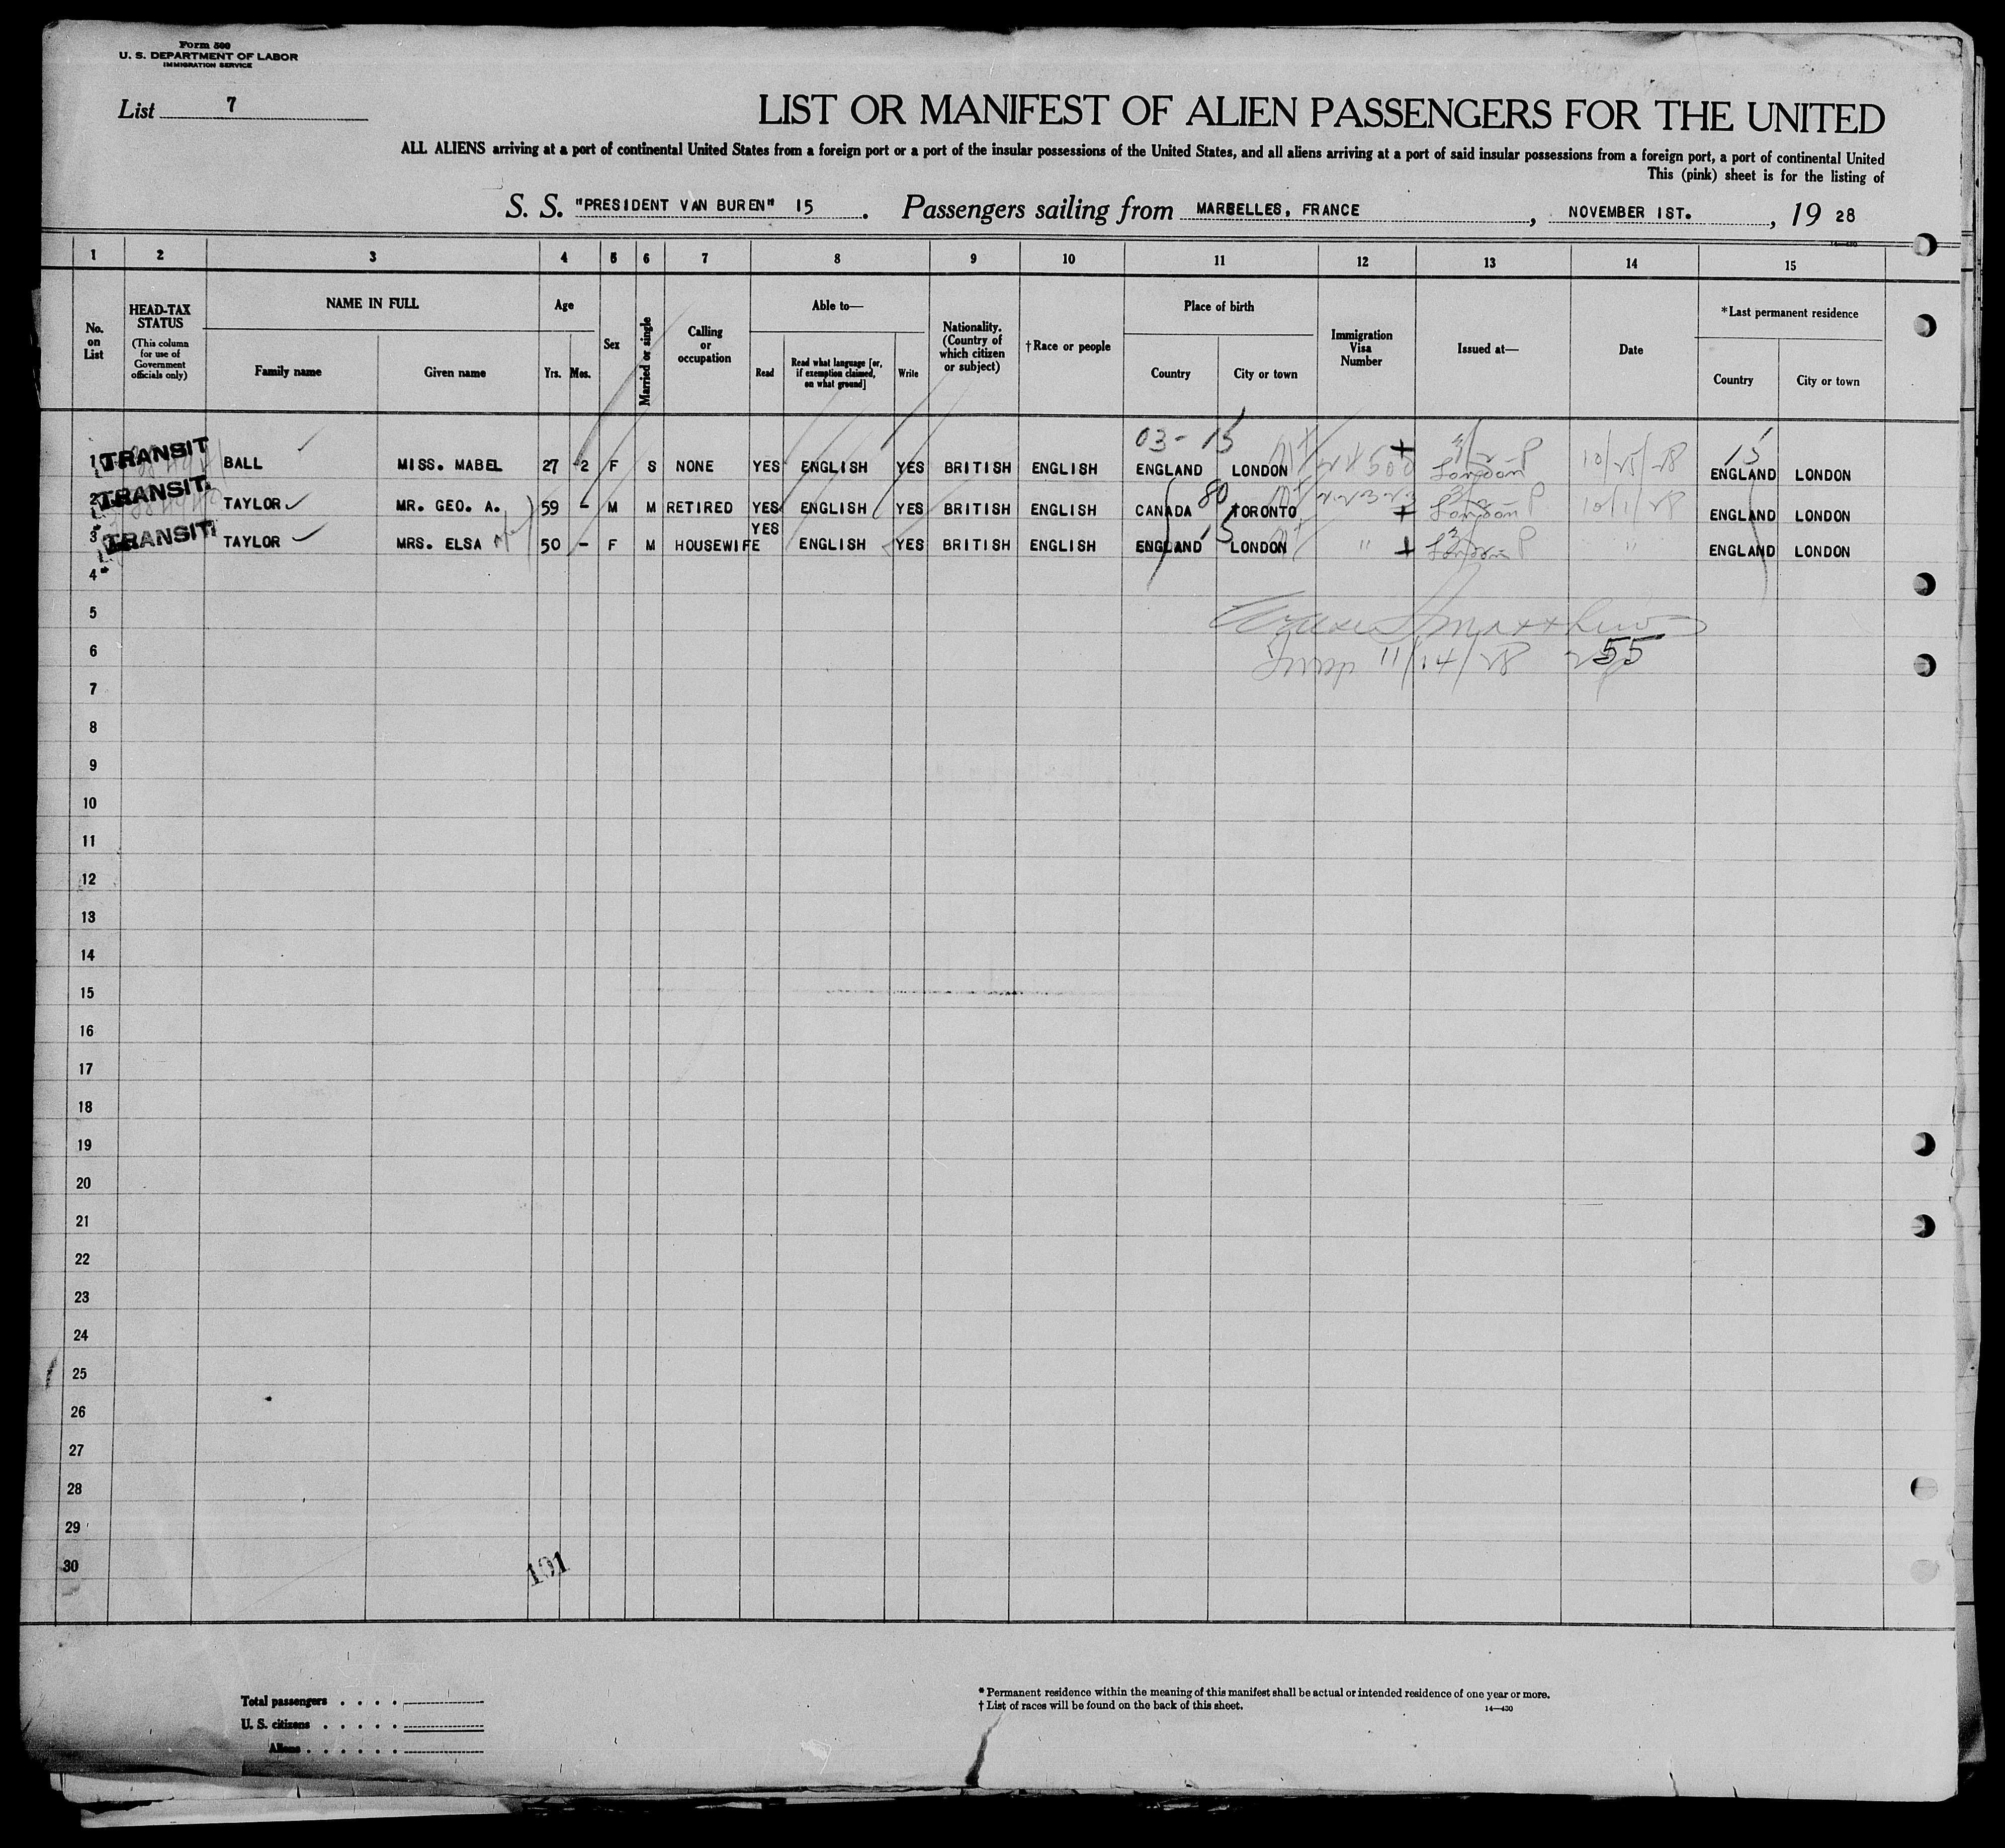 Form 500
U. S. DEPARTMENT OF LABOR
IMMIGRATION SERVICE
List 7
LIST OR MANIFEST OF ALIEN PASSENGERS FOR THE UNITED
ALL ALIENS arriving at a port of continental United States from a foreign port or a port of the insular possessions of the United States, and all aliens arriving at a port of said insular possessions from a foreign port, a port of continental United
This (pink) sheet is for the listing of
S. S. "PRESIDENT VAN BUREN" 15. Passengers sailing from MARSELLES, FRANCE, NOVEMBER 1ST., 19 28
14—430
1 2 3 4 5 6 7 8 9 10 11 12 13 14 15
No. on List
HEAD-TAX STATUS
(This column for use of Government officials only)
NAME IN FULL
Family name Given name
Age
Yrs. Mos.
Sex
Married or single
Calling or occupation
Able to—
Read
Read what language [or, if exemption claimed, on what ground]
Write
Nationality. (Country of which citizen or subject)
†Race or people
Place of birth
Country City or town
Immigration Visa Number
Issued at—
Date
*Last permanent residence
Country City or town
03-15 15
1 TRANSIT BALL MISS. MABEL 27 2 F S NONE YES ENGLISH YES BRITISH ENGLISH ENGLAND LONDON London P 10/25/28 ENGLAND LONDON
2 TRANSIT TAYLOR MR. GEO. A. 59 - M M RETIRED YES ENGLISH YES BRITISH ENGLISH CANADA 80 TORONTO London P 10/1/28 ENGLAND LONDON
YES
3 TRANSIT TAYLOR MRS. ELSA 50 - F M HOUSEWIFE ENGLISH YES BRITISH ENGLISH ENGLAND 15 LONDON " London P " ENGLAND LONDON
4
5
6 Insp 11/14/28 55
7
8
9
10
11
12
13
14
15
16
17
18
19
20
21
22
23
24
25
26
27
28
29
30
101
Total passengers . . . .
U. S. citizens . . . . .
Aliens . . . . . .
* Permanent residence within the meaning of this manifest shall be actual or intended residence of one year or more.
† List of races will be found on the back of this sheet.
14—430